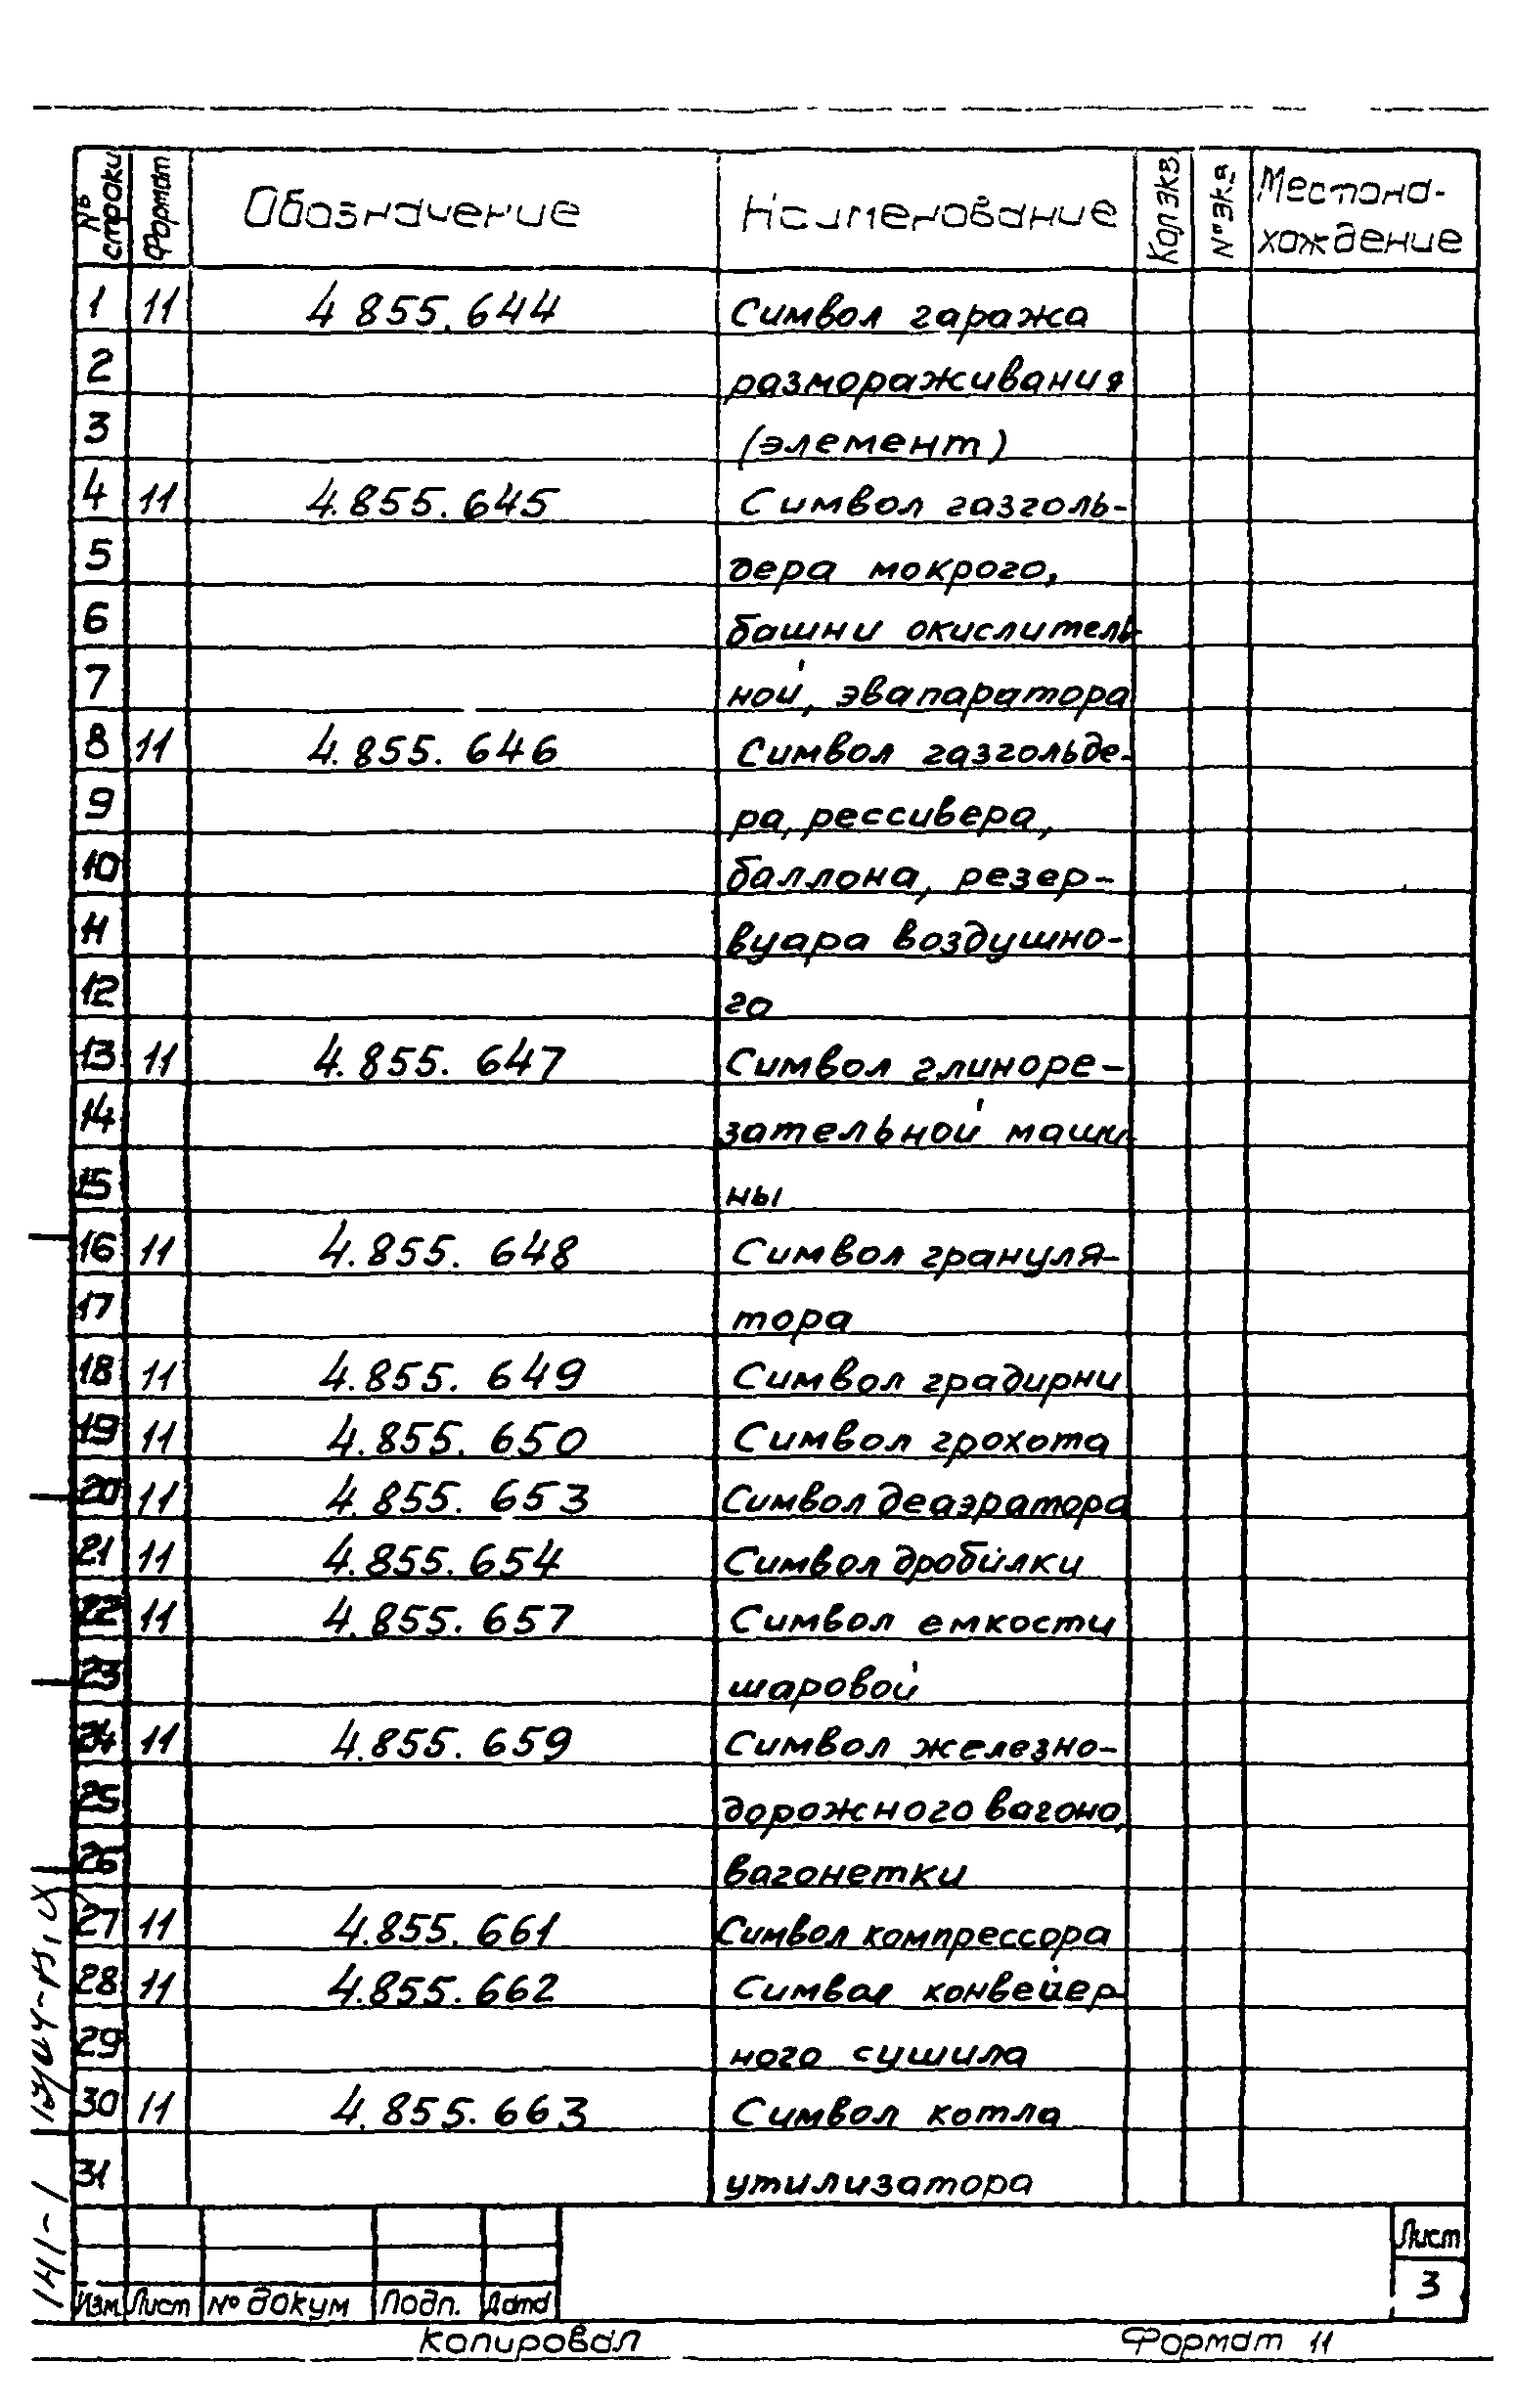 № строки Формат Обозначение Наименование Кол экз. № экз. Местона-
хождение
1 11 4 855. 644 Символ гаража
2 размораживания
3 (элемент)
4 11 4.855. 645 Символ газголь-
5 дера мокрого,
6 башни окислитель-
7 ной, эвапаратора
8 11 4.855. 646 Символ газгольде-
9 ра, рессивера,
10 баллона, резер-
11 вуара воздушно-
12 го
13 11 4.855. 647 Символ глиноре-
14 зательной маши-
15 ны
16 11 4.855. 648 Символ грануля-
17 тора
18 11 4.855. 649 Символ градирни
19 11 4.855. 650 Символ грохота
20 11 4.855. 653 Символ деаэратора
21 11 4.855. 654 Символ дробилки
22 11 4.855. 657 Символ емкости
23 шаровой
24 11 4.855. 659 Символ железно-
25 дорожного вагона,
26 вагонетки
27 11 4.855. 661 Символ компрессора
28 11 4.855. 662 Символ конвейер-
29 ного сушила
30 11 4. 855. 663 Символ котла
31 утилизатора
Лист
3
Изм Лист № докум Подп. Дата
Копировал Формат 11
141-1